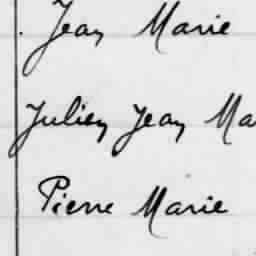 Jean Marie
Julien Jean Ma
Pierre Marie